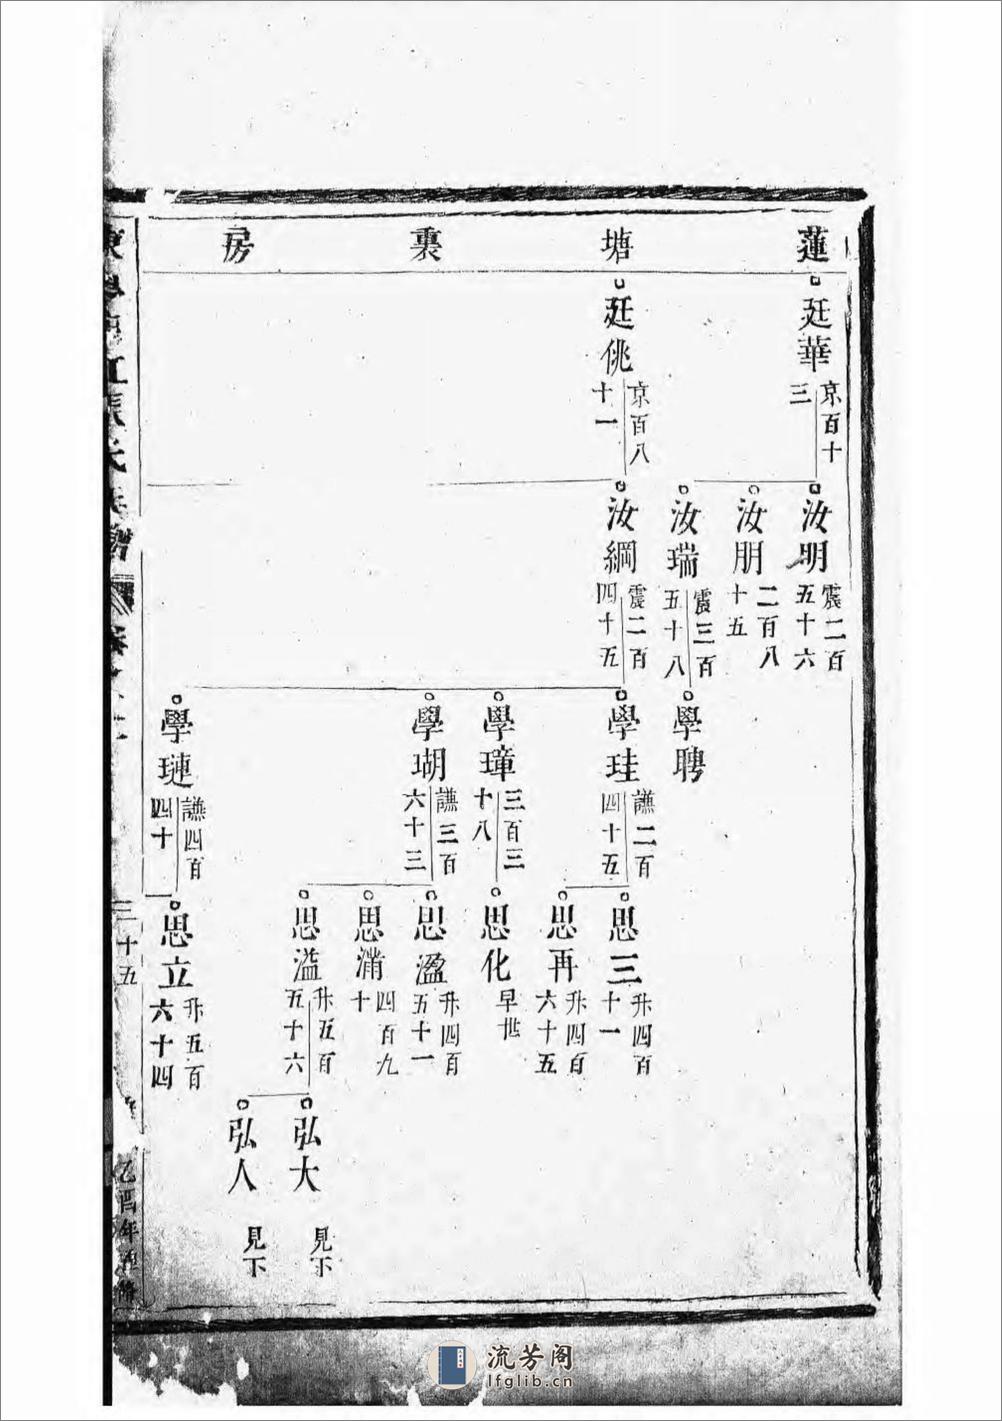 蓮塘裏房
廷華 京百十三
廷佻 京百八十一
汝明 震二百五十六
汝朋 二百八十五
汝瑞 震三百五十八
汝綱 震二百四十五
學聘
學珪 謙二百四十五
學璋 三百三十八
學瑚 謙三百六十三
學璉 謙四百四十
思三 升四百十一
思再 升四百六十五
思化 早世
思溋 升四百五十一
思滿 四百九十
思溢 升五百五十六
思立 升五百六十四
弘大 見下
弘人 見下
江張氏
三十五
乙酉年重脩
流芳阁
lfglib.cn